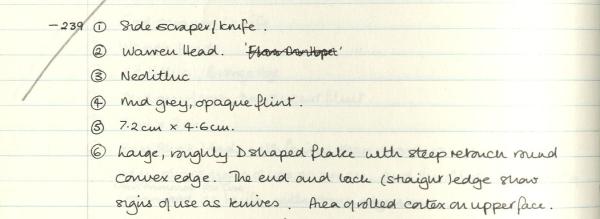 -239 ① Side scraper/knife.
② Warren Head.
③ Neolithic
④ Mid grey, opaque flint.
⑤ 7.2cm x 4.6cm.
⑥ Large, roughly D shaped flake with steep retouch round
convex edge. The end and back (straight) edge show
signs of use as knives. Area of rolled cortex on upper face.